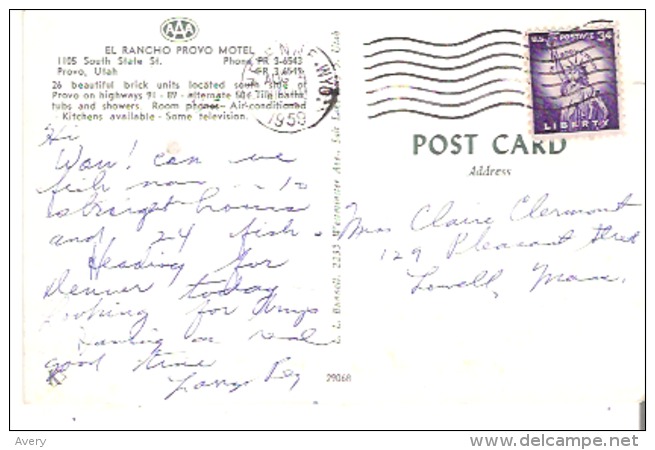 AAA
EL RANCHO PROVO MOTEL
1105 South State St. Phone FR 3-6543
Provo, Utah FR 3
26 beautiful brick units located south side of
Provo on highways 91 - 89 - alternate 50. Tile baths,
tubs and showers. Room phones - Air-conditioned
- Kitchens available - Some television.
WYO.
AUG
1959
U.S. POSTAGE 3¢
LIBERTY
POST CARD
Address
Hi
Wow! can we
fish now -- 10
straight hours
and 24 fish.
Heading for
Denver today
looking for things
real
good time
Peg
Miss Claire Clermont
129 Pleasant Street
Lowell, Mass.
2233 Westminster Ave., Salt Lake
29068
Avery
www.delcampe.net